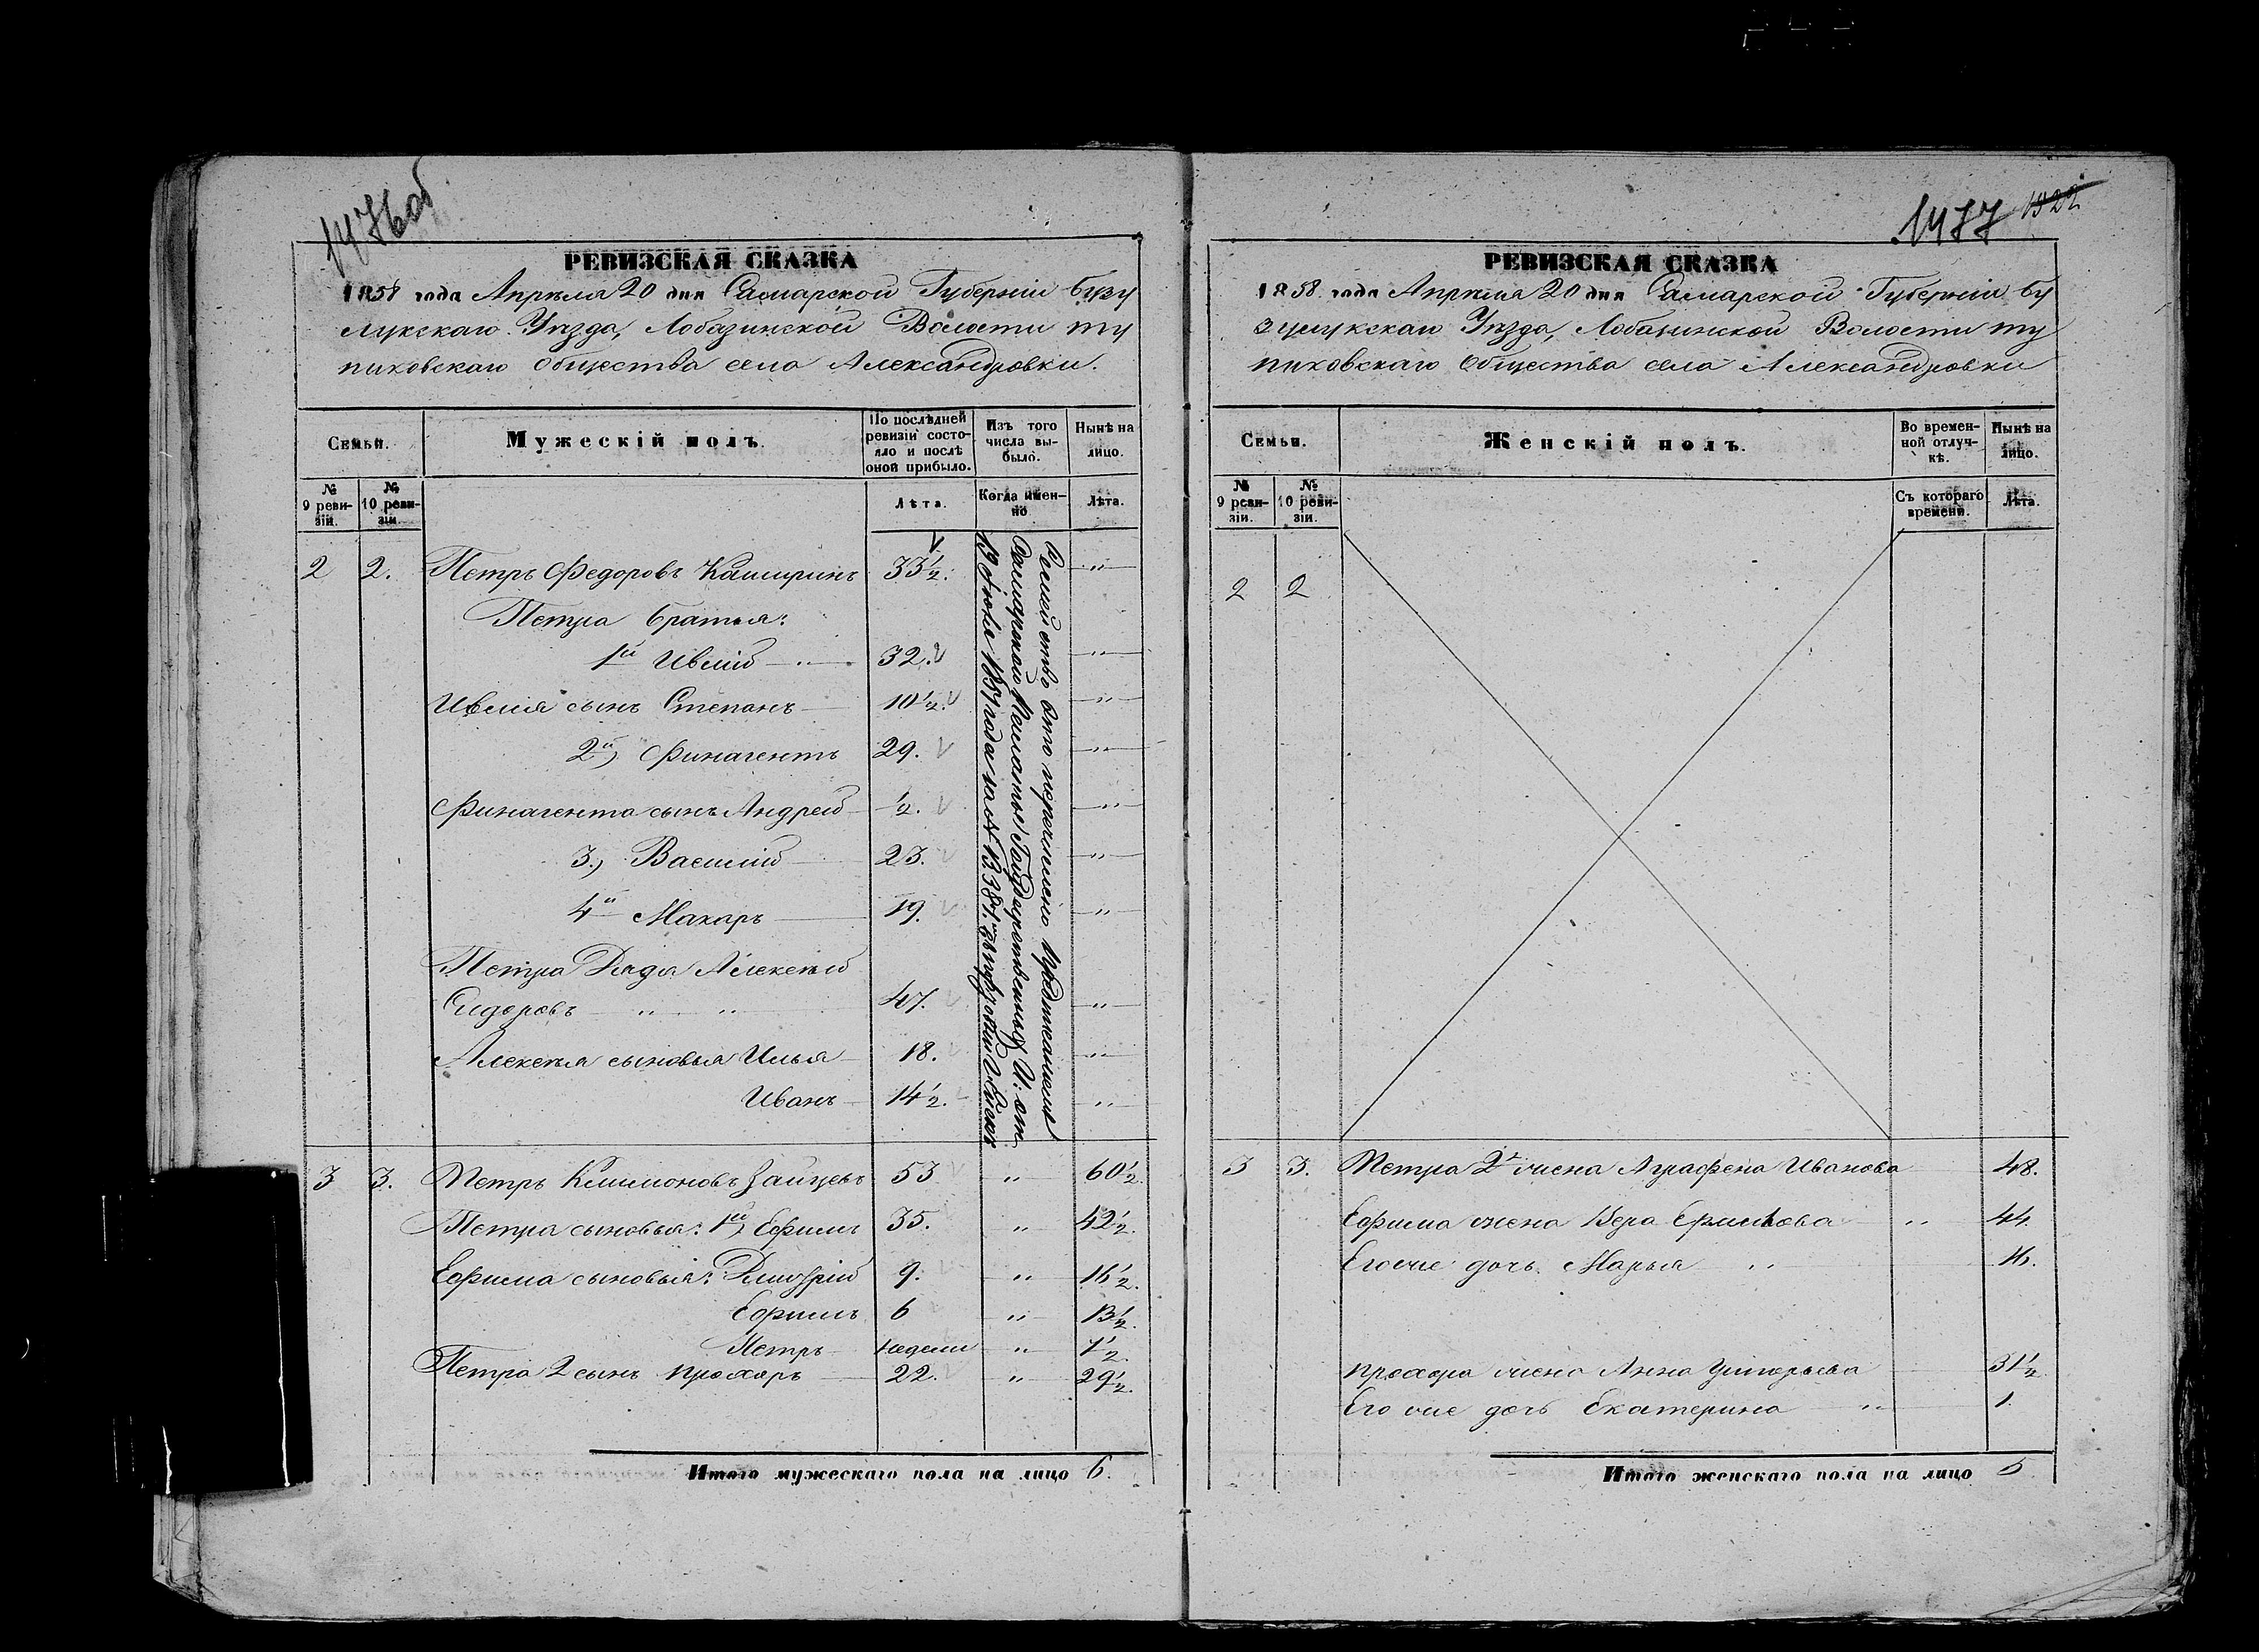 1476об
РЕВИЗСКАЯ СКАЗКА
1858 года Апрѣля 20 дня Самарской Губерніи Бузу
лукскаго Уѣзда, Лобазинской Волости Ту
пиковскаго общества села Александровки.
Семьи.
Мужескій полъ.
По послѣдней ревизіи состояло и послѣ оной прибыло.
Изъ того числа выбыло.
Нынѣ на лицо.
№ 9 ревизіи.
№ 10 ревизіи.
Лѣта.
Когда именно
Лѣта.
2 2. Петръ Федоровъ Каширинъ 33½. "
Петра братья:
1й Ивлій " 32. "
Ивлія сынъ Степанъ 10½. "
2й, Финагентъ 29. "
Финагента сынъ Андрей ½. "
3, Василій 23. "
4й Макаръ 19. "
Петра Дядя Алексѣй
Сидоровъ " " 47. "
Алексѣя сыновья Илья 18. "
Иванъ 14½. "
Семейство это перечислено
Самарской Палаты Государственныхъ И: отъ
19 Іюня 1851 года за № 13387.
3 3. Петръ Климоновъ Зайцевъ 53 " 60½.
Петра сыновья: 1й, Ефимъ 35. " 42½.
Ефима сыновья: Дмитрій 9. " 16½.
Ефимъ 6 " 13½.
Петръ недели " 7½.
Петра 2 сынъ Прохоръ 22. " 29½.
Итого мужескаго пола на лицо 6.
1477 1522
РЕВИЗСКАЯ СКАЗКА
1858 года Апрѣля 20 дня Самарской Губерніи Бу
зулукскаго Уѣзда, Лобазинской Волости Ту
пиковскаго Общества села Александровки
Семьи.
Женскій полъ.
Во временной отлучкѣ.
Нынѣ на лицо.
№ 9 ревизіи.
№ 10 ревизіи.
Съ котораго времени.
Лѣта.
2 2
3 3. Петра 2я жена Аграфена Иванова 48.
Ефима жена Вера Ермилова " 44.
Его же дочь Марья " 16.
Прохора жена Анна Григорьева 31½
Его же дочь Екатерина " 1.
Итого женскаго пола на лицо 5